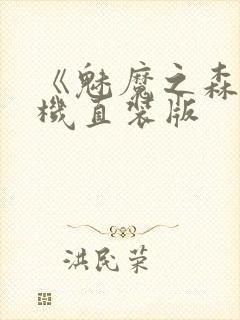 《魅魔之森
機直装版
洪民荣